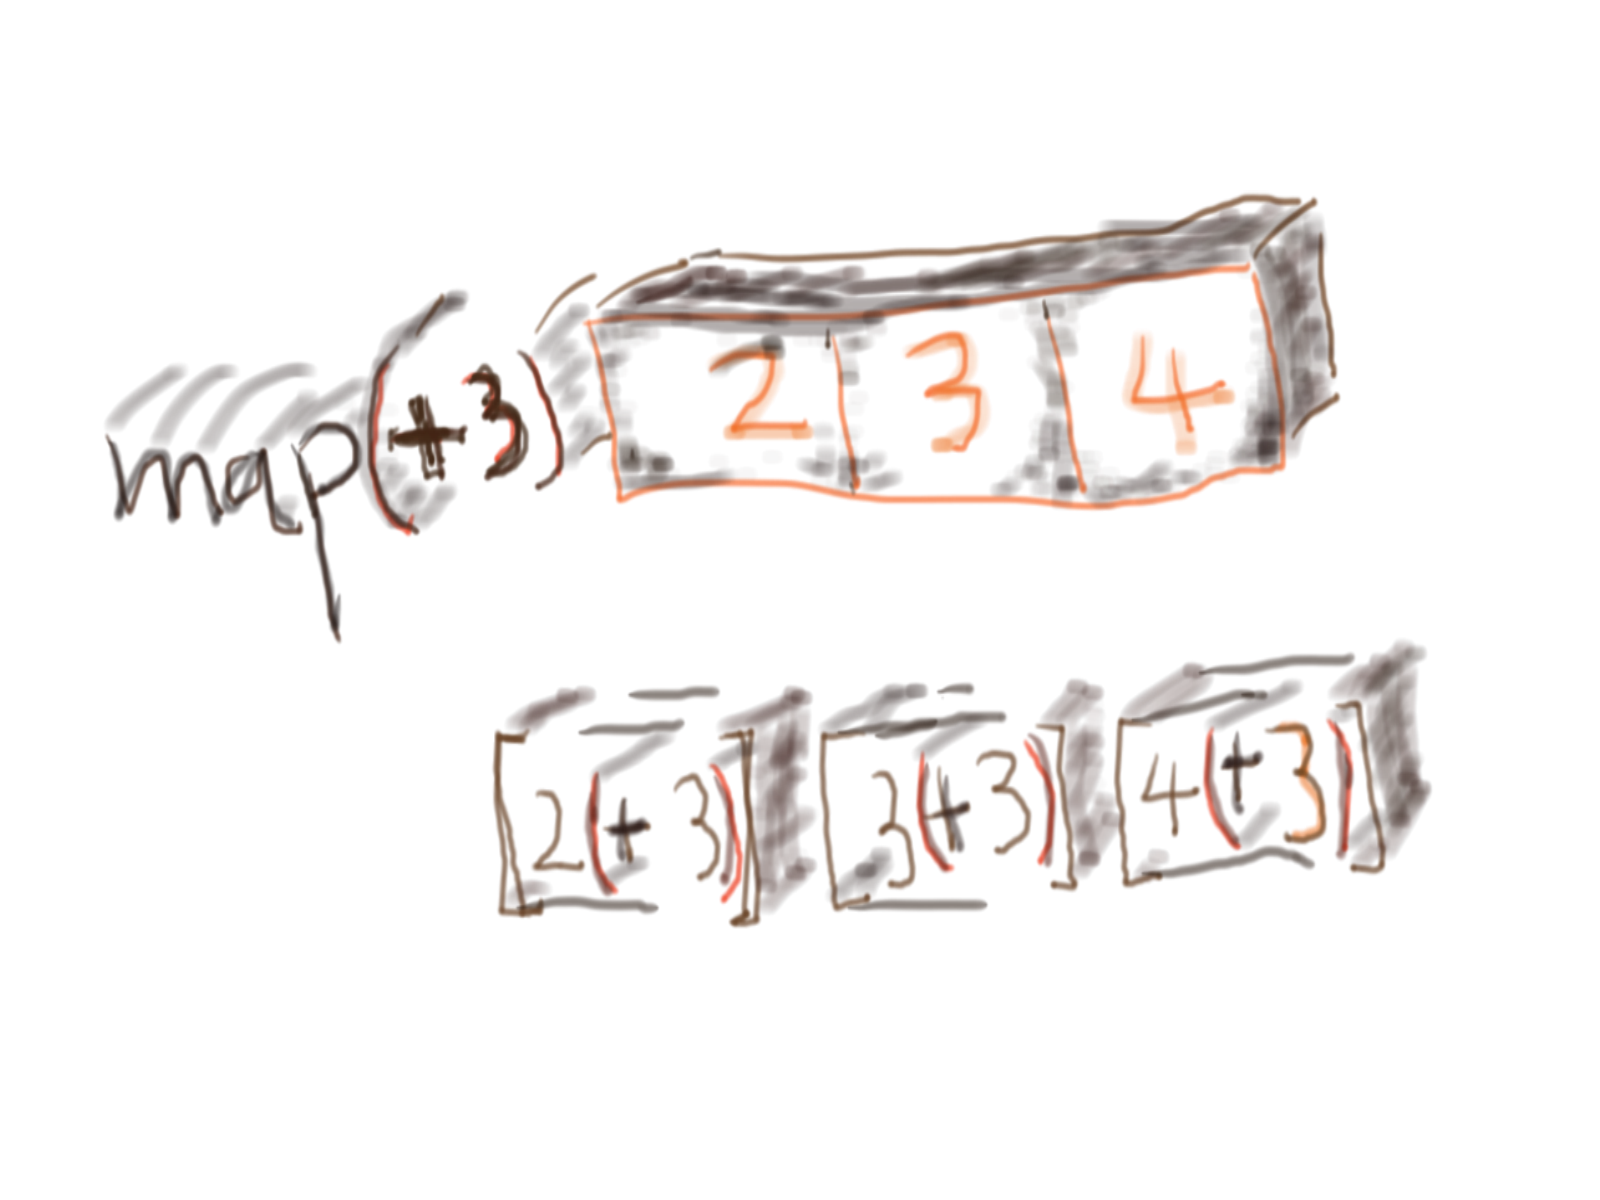 map(+3) 2 3 4
[2(+3)] [3(+3)] [4(+3)]